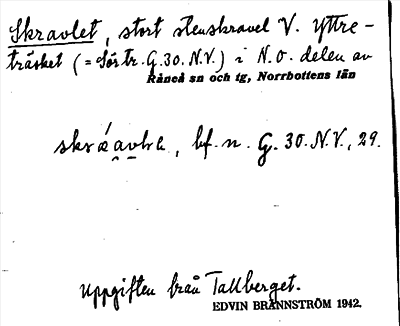 Skravlet, stort stenskravel V. Yttre-
träsket (= Sörtr. G. 30. N.V.) i N.O. delen av
Råneå sn och tg, Norrbottens län
bf. n. G. 30. N.V., 29.
Uppgiften från Tallberget.
EDVIN BRÄNNSTRÖM 1942.